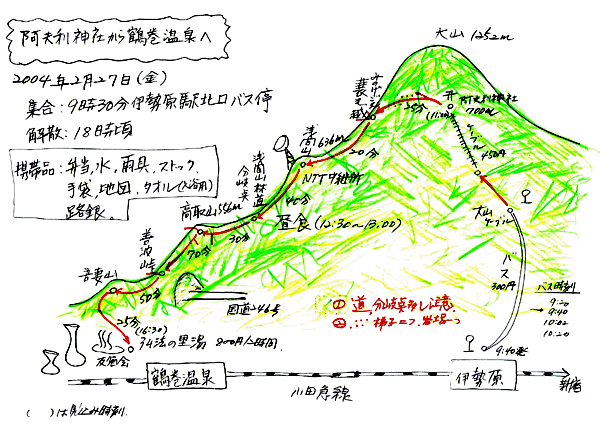 阿夫利神社から鶴巻温泉へ
2004年2月27日(金)
集合:9時30分伊勢原駅北口バス停
解散:18時頃
携帯品:弁当,水,雨具,ストック,
手袋,地図,タオル(入浴用)
路銀。
大山 1252m
阿夫利神社
700m
(11:00)
35分
ケーブル
450円
大山
ケーブル
バス
300円
バス時刻
9:20
9:40
10:02
10:20
9:40発
20分
浅間山
636m
NTT中継所
40分
浅間山林道
分岐点
昼食(12:30~13:00)
30分
高取山 556m
70分
善波峠
50分
吾妻山
25分
(16:30)
国道246号
弘法の里湯 800円/2時間
反省会
① 道,分岐点多し注意
② ∴:梯子=つ,岩場一つ
鶴巻温泉
小田急線
伊勢原
新宿
( )は見込み時刻。